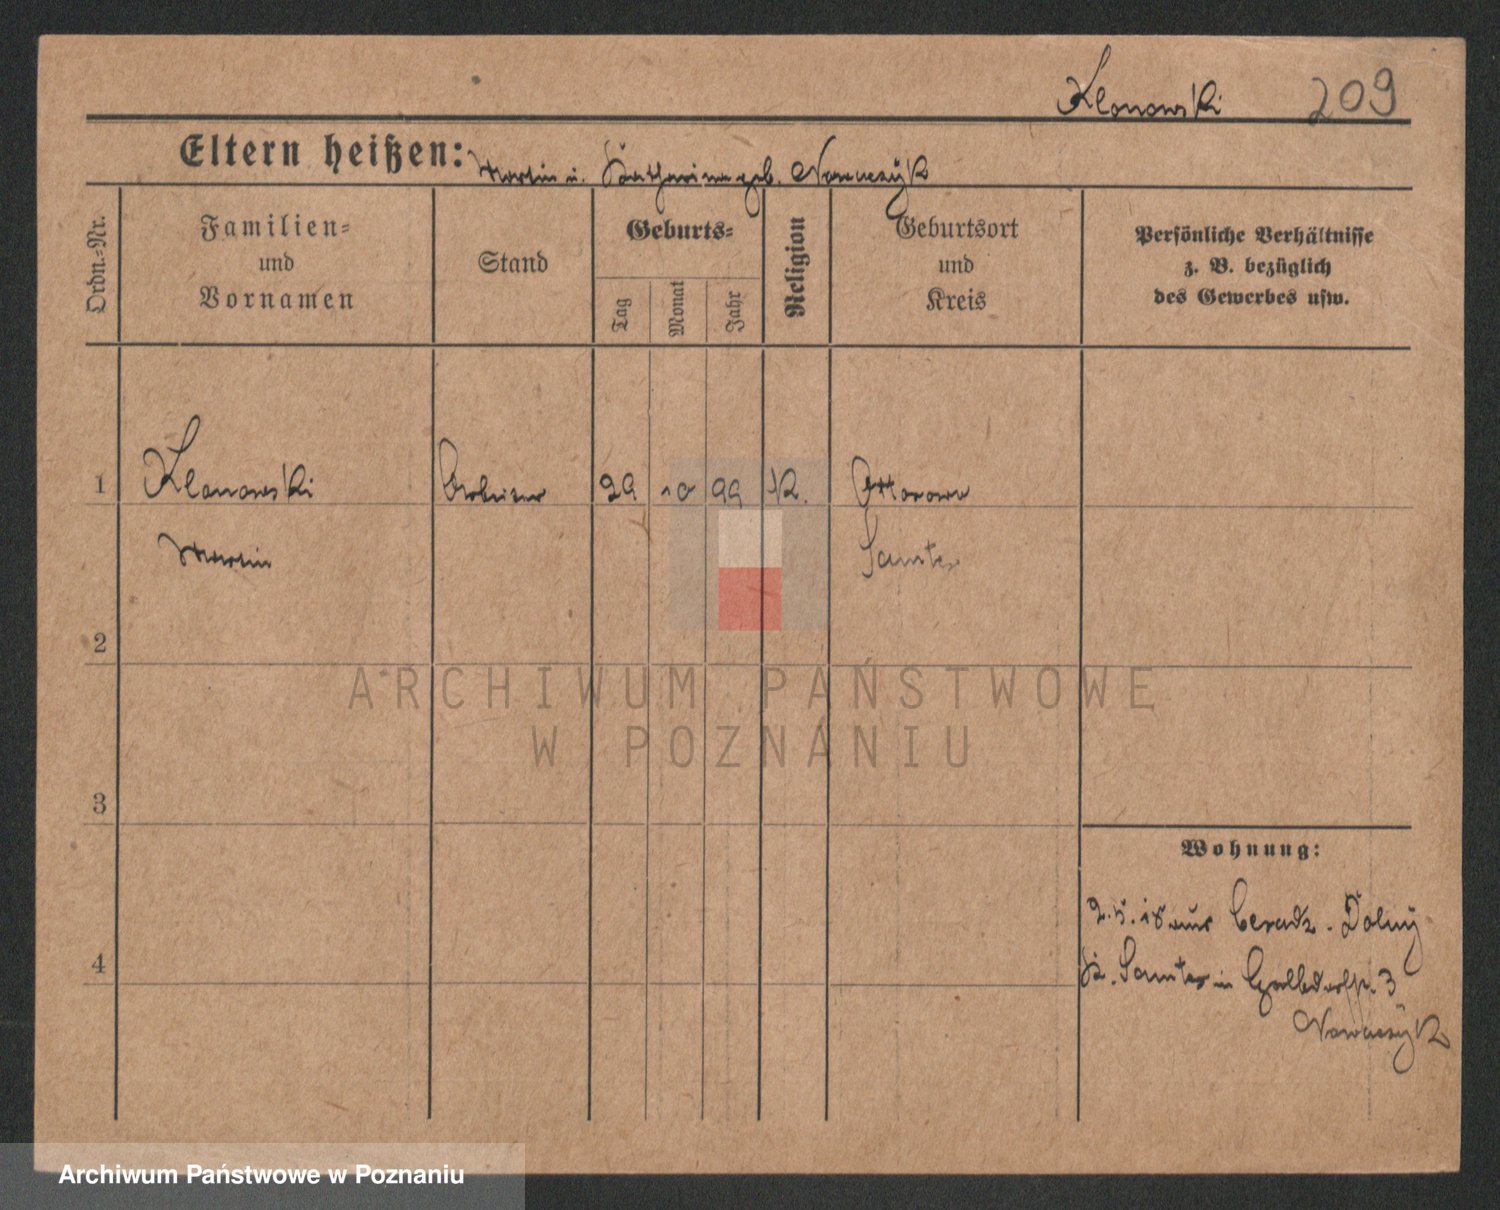 Klonowski 209
Eltern heißen: Martin u. Katharina geb. Nowaczÿk
Ordn.-Nr.
Familien-
und
Vornamen
Stand
Geburts-
Tag
Monat
Jahr
Religion
Geburtsort
und
Kreis
Persönliche Verhältnisse
z. B. bezüglich
des Gewerbes usw.
1 Klonowski Arbeiter 29 10 99 K. Ottorowo
Martin Samter
2
3
4
Wohnung:
2.5.18 aus Ceradz-Dolnÿ
K. Samter in 3
Nowaczÿk
ARCHIWUM PAŃSTWOWE
W POZNANIU
Archiwum Państwowe w Poznaniu